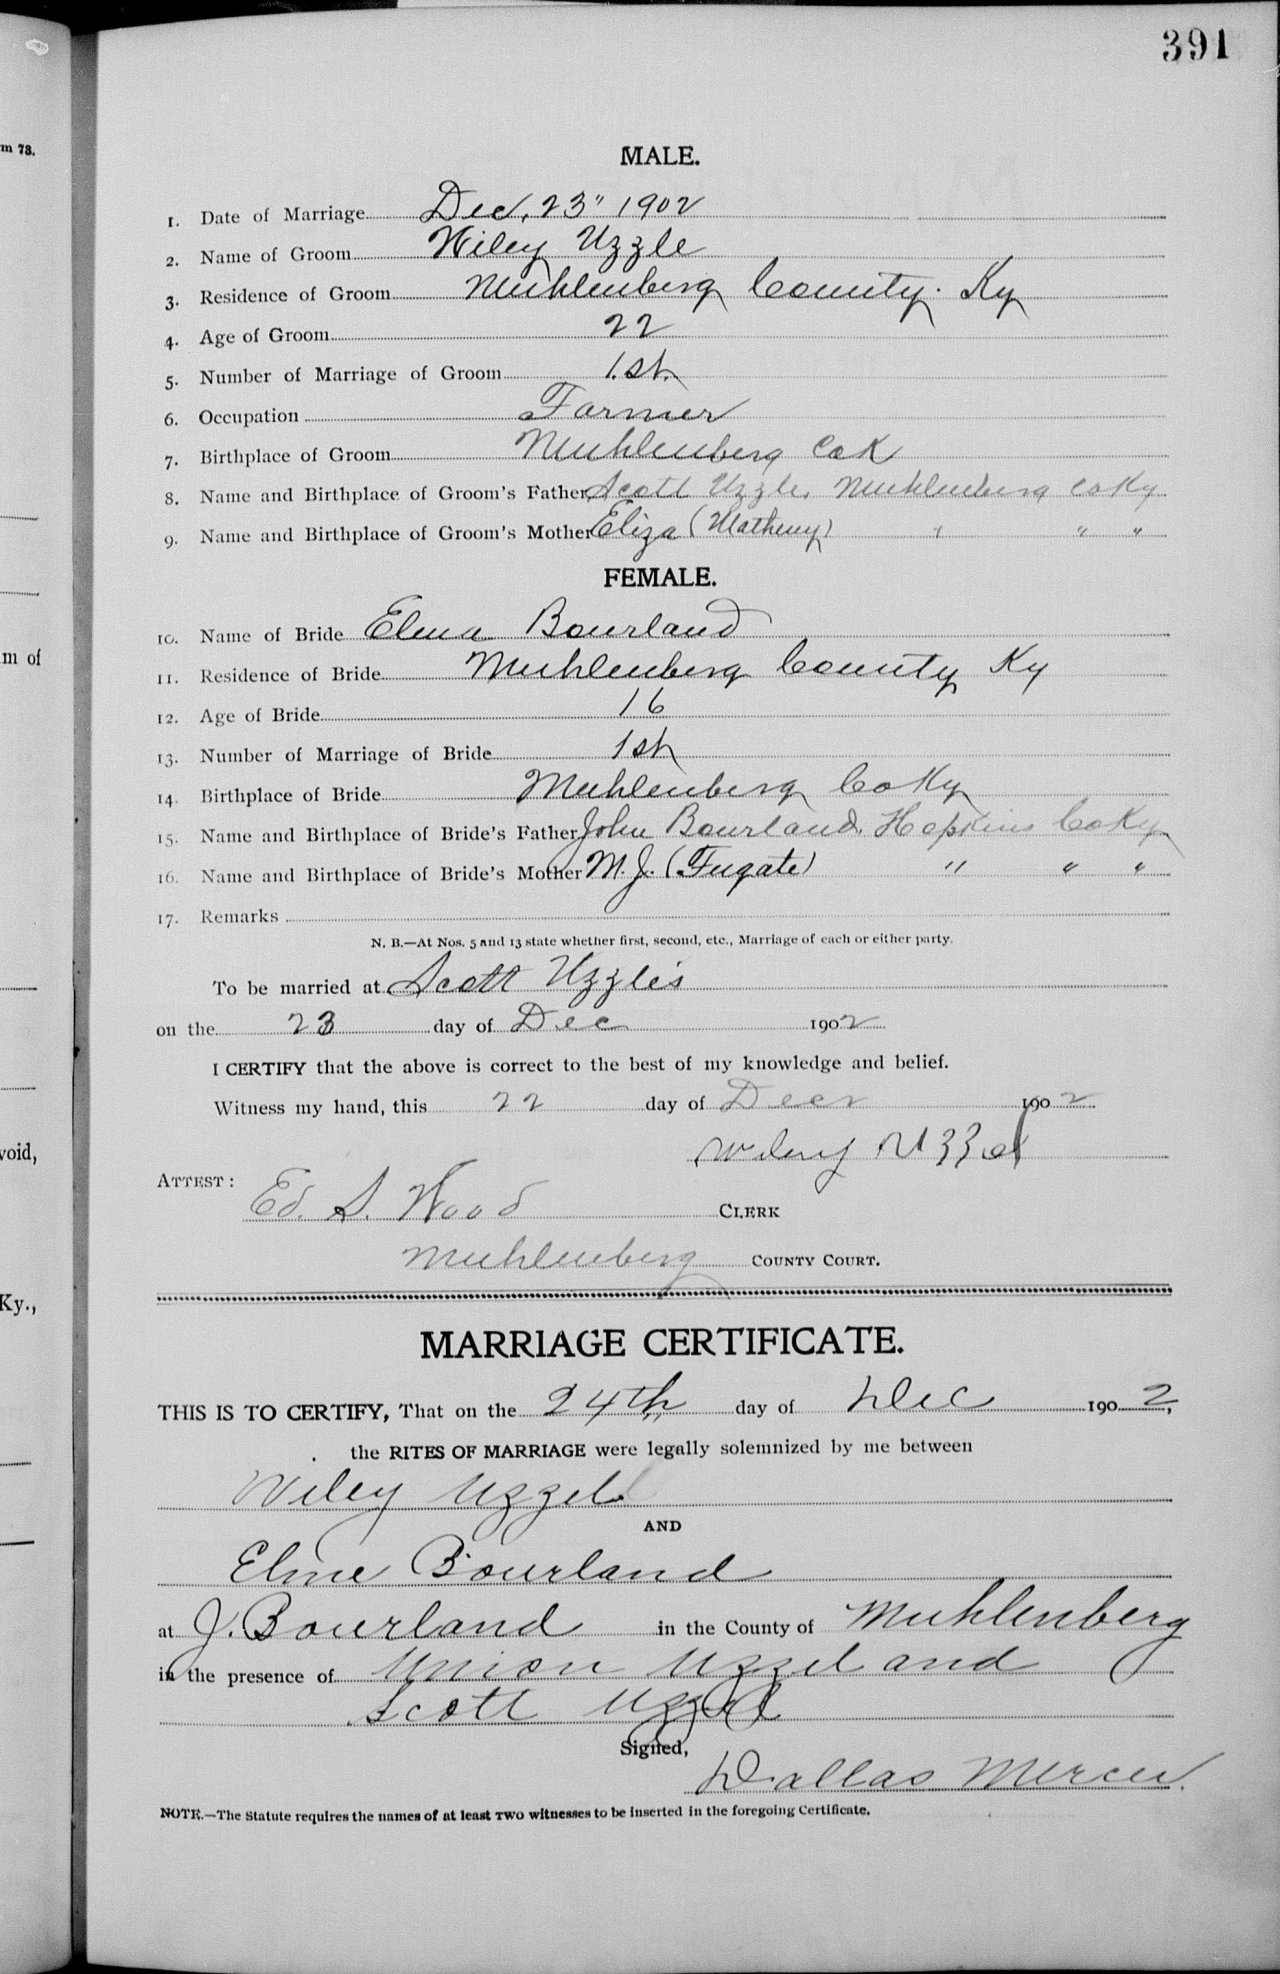 391
m 73.
MALE.
1. Date of Marriage Dec, 23" 1902
2. Name of Groom Wiley Uzzle
3. Residence of Groom Muhlenberg County. Ky
4. Age of Groom 22
5. Number of Marriage of Groom 1.st.
6. Occupation Farmer
7. Birthplace of Groom Muhlenberg Co K
8. Name and Birthplace of Groom's Father Scott Uzzle, Muhlenberg Co Ky
9. Name and Birthplace of Groom's Mother Eliza (Matheny) " " "
FEMALE.
10. Name of Bride Elma Bourland
m of
11. Residence of Bride Muhlenberg County Ky
12. Age of Bride 16
13. Number of Marriage of Bride 1st
14. Birthplace of Bride Muhlenberg Co Ky
15. Name and Birthplace of Bride's Father John Bourland. Hopkins Co Ky
16. Name and Birthplace of Bride's Mother M. J. (Fugate) " " "
17. Remarks
N. B.—At Nos. 5 and 13 state whether first, second, etc., Marriage of each or either party.
To be married at Scott Uzzle's
on the 23 day of Dec 1902
I CERTIFY that the above is correct to the best of my knowledge and belief.
Witness my hand, this 22 day of Decr 1902
void,
Wiley Uzzel
ATTEST:
Ed. S. Wood CLERK
Muhlenberg COUNTY COURT.
Ky.,
MARRIAGE CERTIFICATE.
THIS IS TO CERTIFY, That on the 24th day of Dec 1902,
the RITES OF MARRIAGE were legally solemnized by me between
Wiley Uzzel
AND
Elme Bourland
at J. Bourland in the County of Muhlenberg
in the presence of Union Uzzel and
Scott Uzzel
Signed,
Dallas Mercer.
NOTE.—The Statute requires the names of at least TWO witnesses to be inserted in the foregoing Certificate.